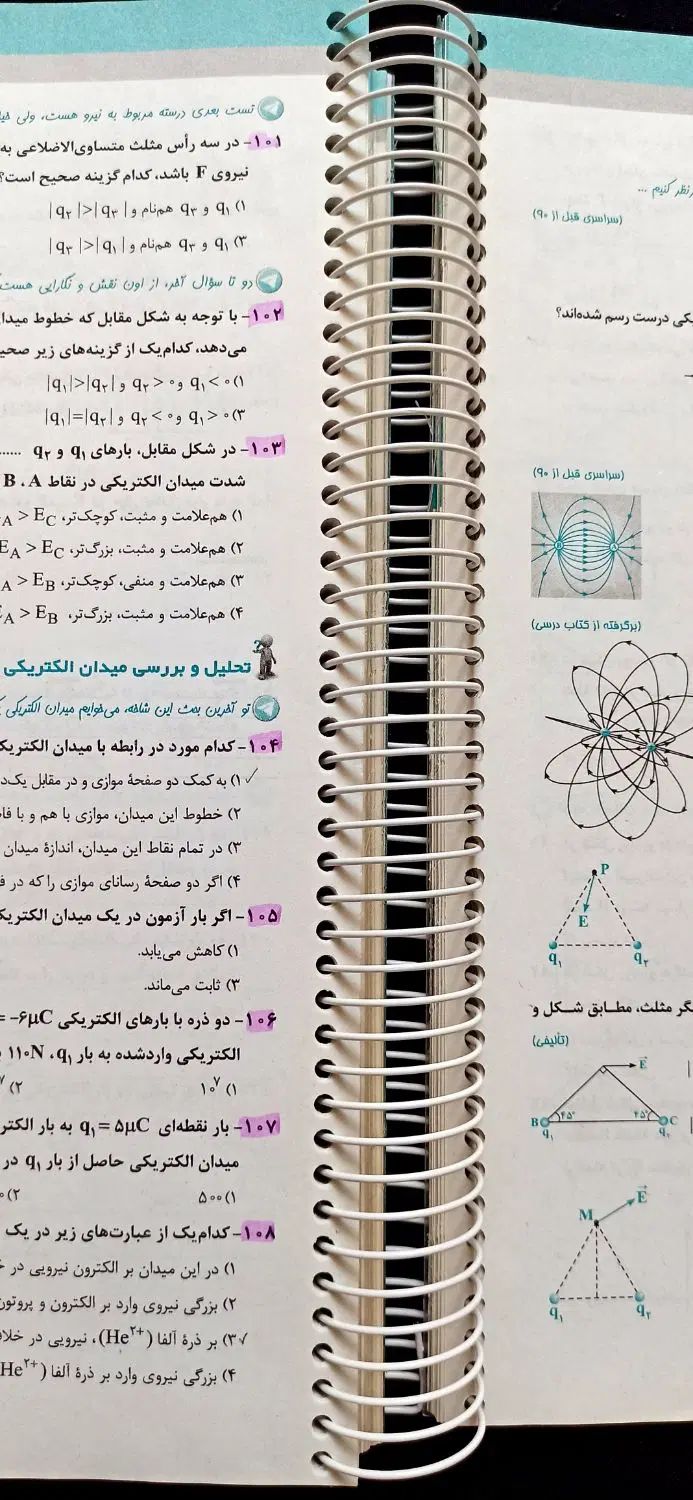 تست بعدی درسته مربوط به نیرو هست، ولی
۱۰۱- در سه رأس مثلث متساوی‌الاضلاعی به
نیروی F باشد، کدام گزینه صحیح است؟
۱) q₁ و q₃ هم‌نام و |q₂|>|q₃|
۳) q₁ و q₃ هم‌نام و |q₃|>|q₁|
دو تا سؤال آخر، از اون نقش و نگارایی هست
۱۰۲- با توجه به شکل مقابل که خطوط
می‌دهد، کدام‌یک از گزینه‌های زیر
۱) q₁<۰ و q₂>۰ و |q₁|>|q₂|
۳) q₁>۰ و q₂<۰ و |q₁|=|q₂|
۱۰۳- در شکل مقابل، بارهای q₁ و q₂ ......
شدت میدان الکتریکی در نقاط A، B
۱) هم‌علامت و مثبت، کوچک‌تر، A > E_C
۲) هم‌علامت و مثبت، بزرگ‌تر، E_A > E_C
۳) هم‌علامت و منفی، کوچک‌تر، A > E_B
۴) هم‌علامت و مثبت، بزرگ‌تر، A > E_B
تحلیل و بررسی میدان الکتریکی
تو آخرین بحث این شاخه، می‌خوایم میدان الکتریکی
۱۰۴- کدام مورد در رابطه با میدان
۱) به کمک دو صفحهٔ موازی و در مقابل
۲) خطوط این میدان، موازی با هم و با
۳) در تمام نقاط این میدان، اندازهٔ میدان
۴) اگر دو صفحهٔ رسانای موازی را که در
۱۰۵- اگر بار آزمون در یک میدان
۱) کاهش می‌یابد.
۳) ثابت می‌ماند.
۱۰۶- دو ذره با بارهای الکتریکی = −۶μC
الکتریکی واردشده به بار q₁، ۱۱۰N
۱) ۱۰⁷ ۲)
۱۰۷- بار نقطه‌ای q₁ = ۵μC به بار
میدان الکتریکی حاصل از بار q₁ در
۱) ۵۰۰ ۲)
۱۰۸- کدام‌یک از عبارت‌های زیر در یک
۱) در این میدان بر الکترون نیرویی در
۲) بزرگی نیروی وارد بر الکترون و پروتون
۳) بر ذرهٔ آلفا (He²⁺)، نیرویی در
۴) بزرگی نیروی وارد بر ذرهٔ آلفا (He²⁺
نظر کنیم ...
(سراسری قبل از ۹۰)
درست رسم شده‌اند؟
(سراسری قبل از ۹۰)
B A
(برگرفته از کتاب درسی)
P
E
q₁ q₂
مثلث، مطابق شکل و
(تألیفی)
E
B ۴۵° ۴۵° C
q₁ q₂
E
M
q₁ q₂